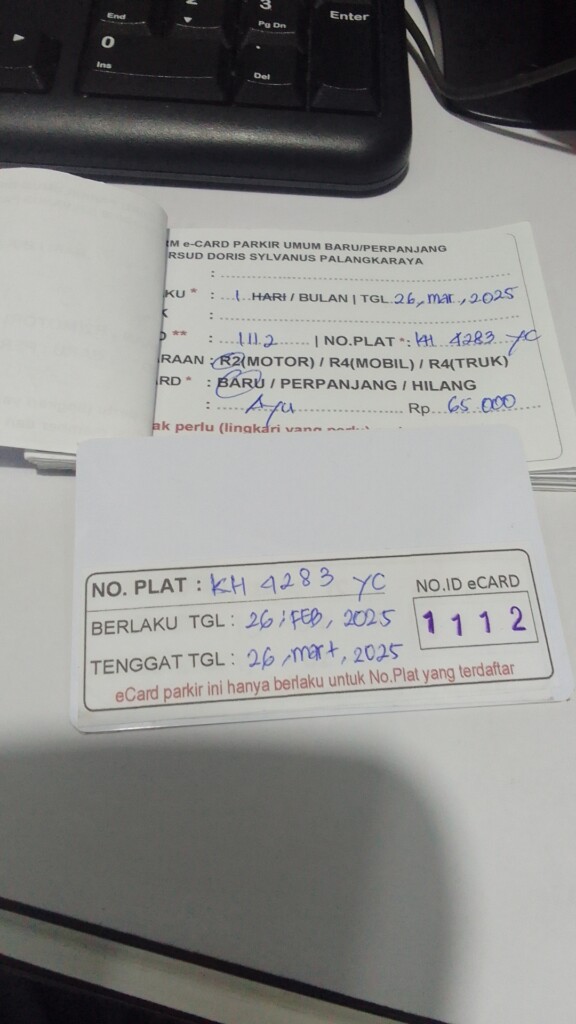 End
2
3
Pg Dn
Enter
0
Ins
.
Del
M e-CARD PARKIR UMUM BARU/PERPANJANG
RSUD DORIS SYLVANUS PALANGKARAYA
:
KU * : 1 HARI / BULAN | TGL 26, mar, 2025
:
** : 1112 | NO.PLAT *: KH 4283 YC
RAAN : R2(MOTOR) / R4(MOBIL) / R4(TRUK)
RD * : BARU / PERPANJANG / HILANG
: Ayu Rp 65.000
ak perlu (lingkari yang perlu)
NO. PLAT : KH 4283 YC
NO.ID eCARD
BERLAKU TGL : 26, FEB, 2025
1112
TENGGAT TGL : 26, mart, 2025
eCard parkir ini hanya berlaku untuk No.Plat yang terdaftar